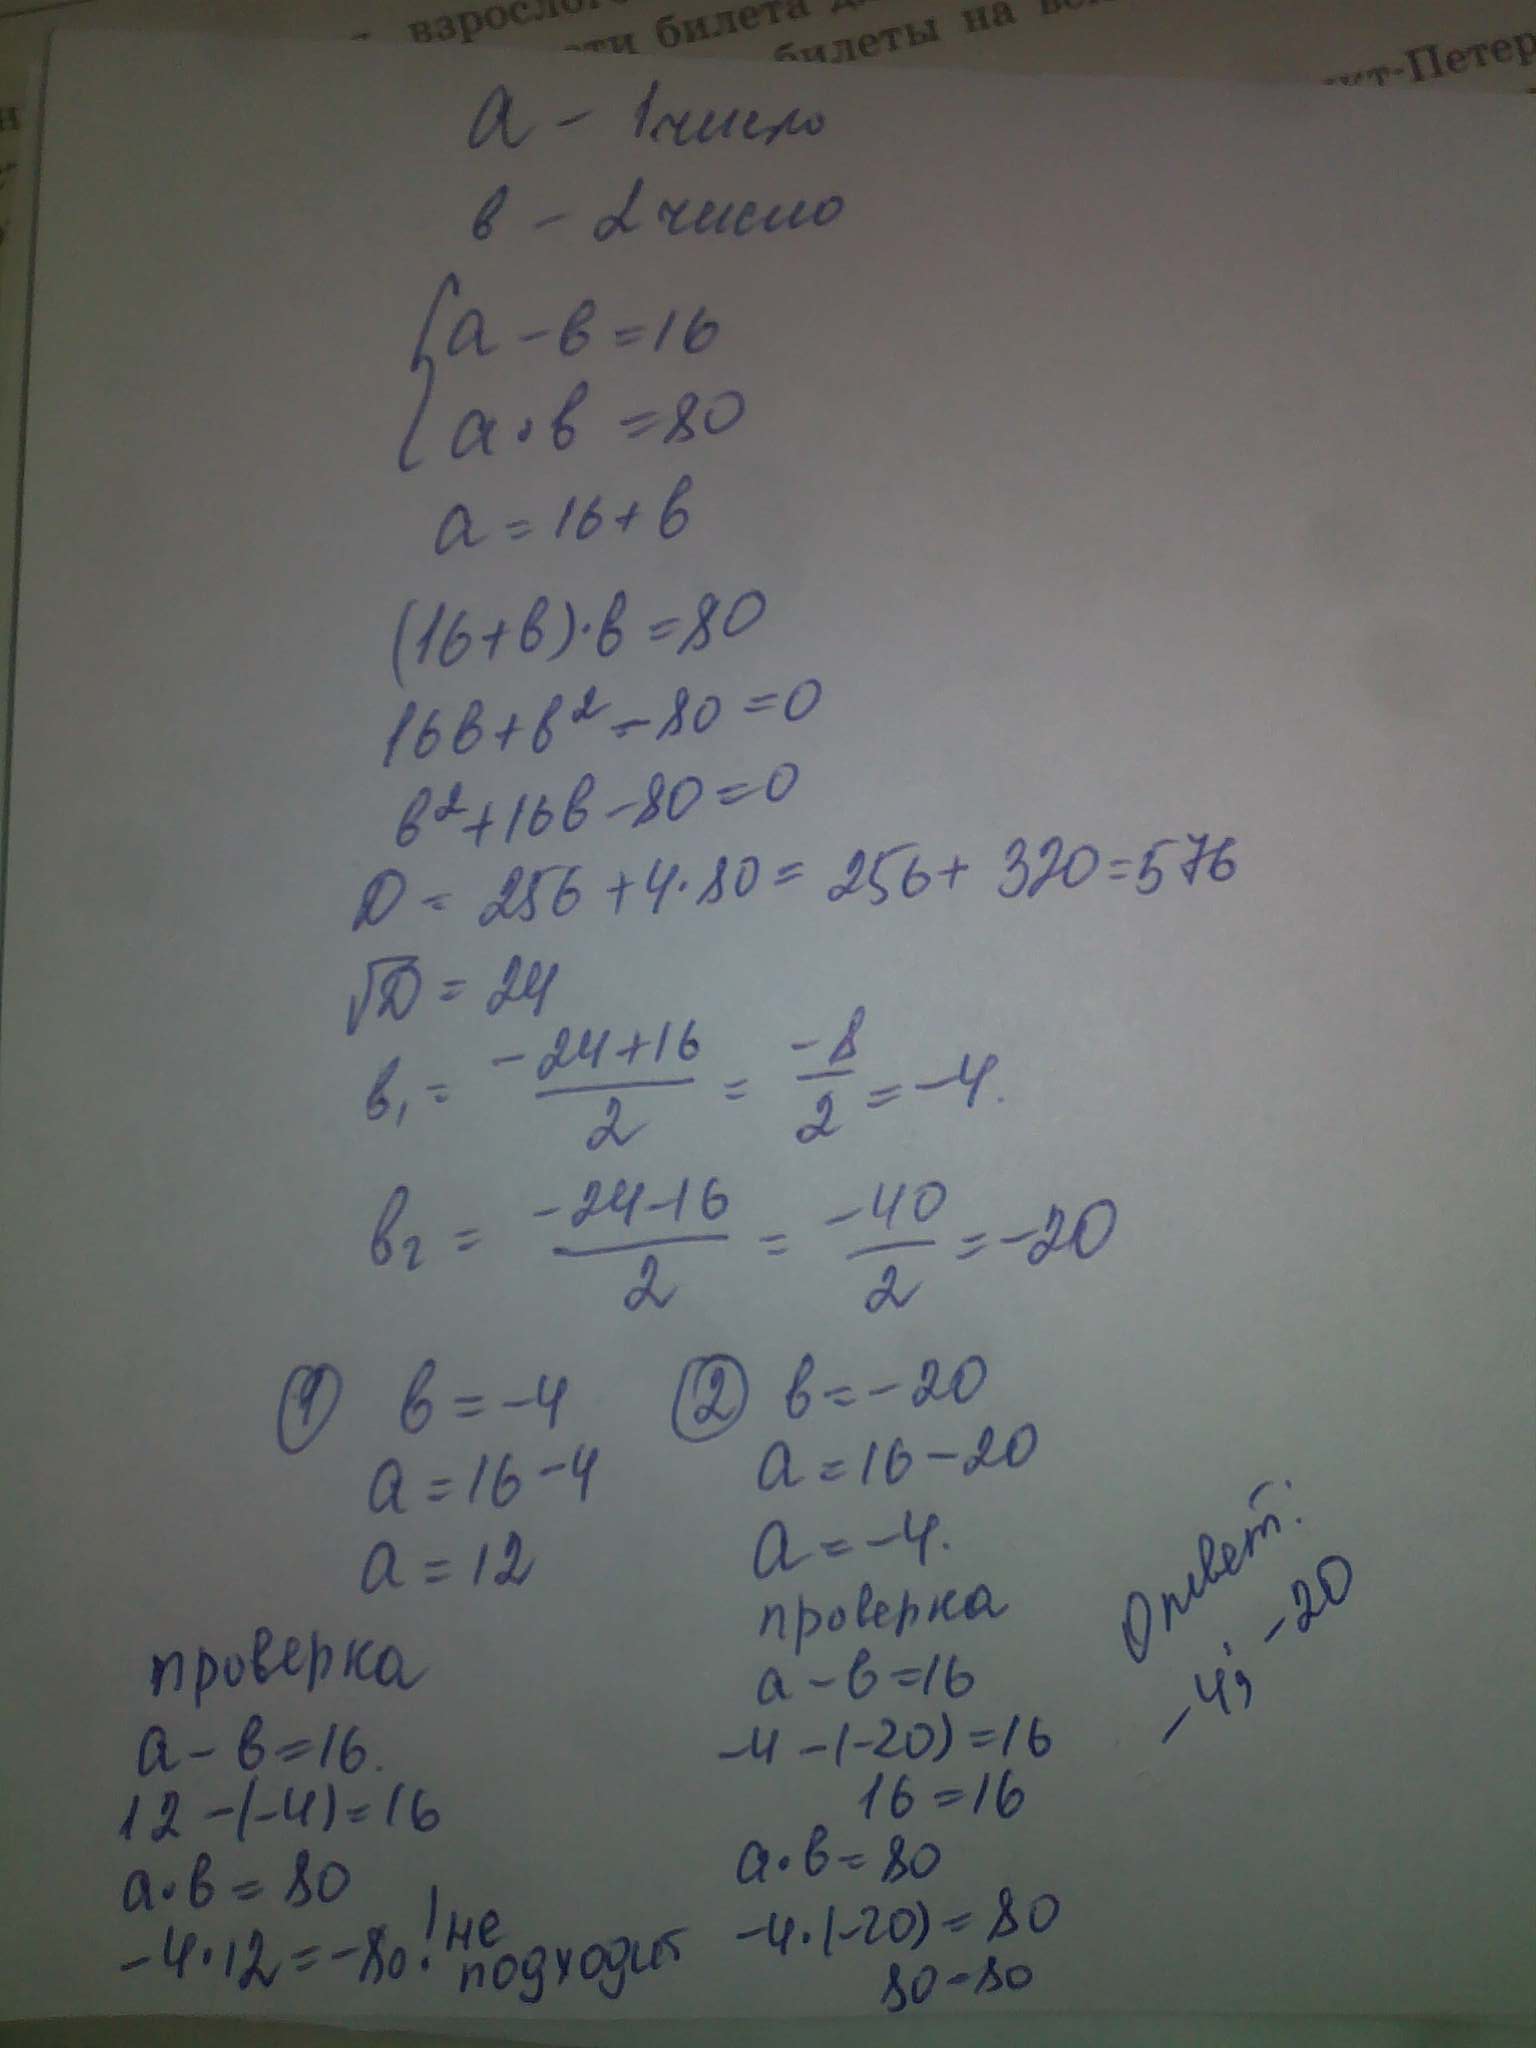 взрослого
сти билета д
билеты на вс
кт-Петер
а - 1 число
в - 2 число
а - в = 16
а · в = 80
а = 16 + в
(16 + в) · в = 80
16в + в² - 80 = 0
в² + 16в - 80 = 0
D = 256 + 4 · 80 = 256 + 320 = 576
√D = 24
в₁ = (-24 + 16)/2 = -8/2 = -4.
в₂ = (-24 - 16)/2 = -40/2 = -20
① в = -4
а = 16 - 4
а = 12
проверка
а - в = 16.
12 - (-4) = 16
а · в = 80
-4 · 12 = -80 ! не подходит
② в = -20
а = 16 - 20
а = -4.
проверка
а - в = 16
-4 - (-20) = 16
16 = 16
а · в = 80
-4 · (-20) = 80
80 = 80
Ответ:
-4; -20